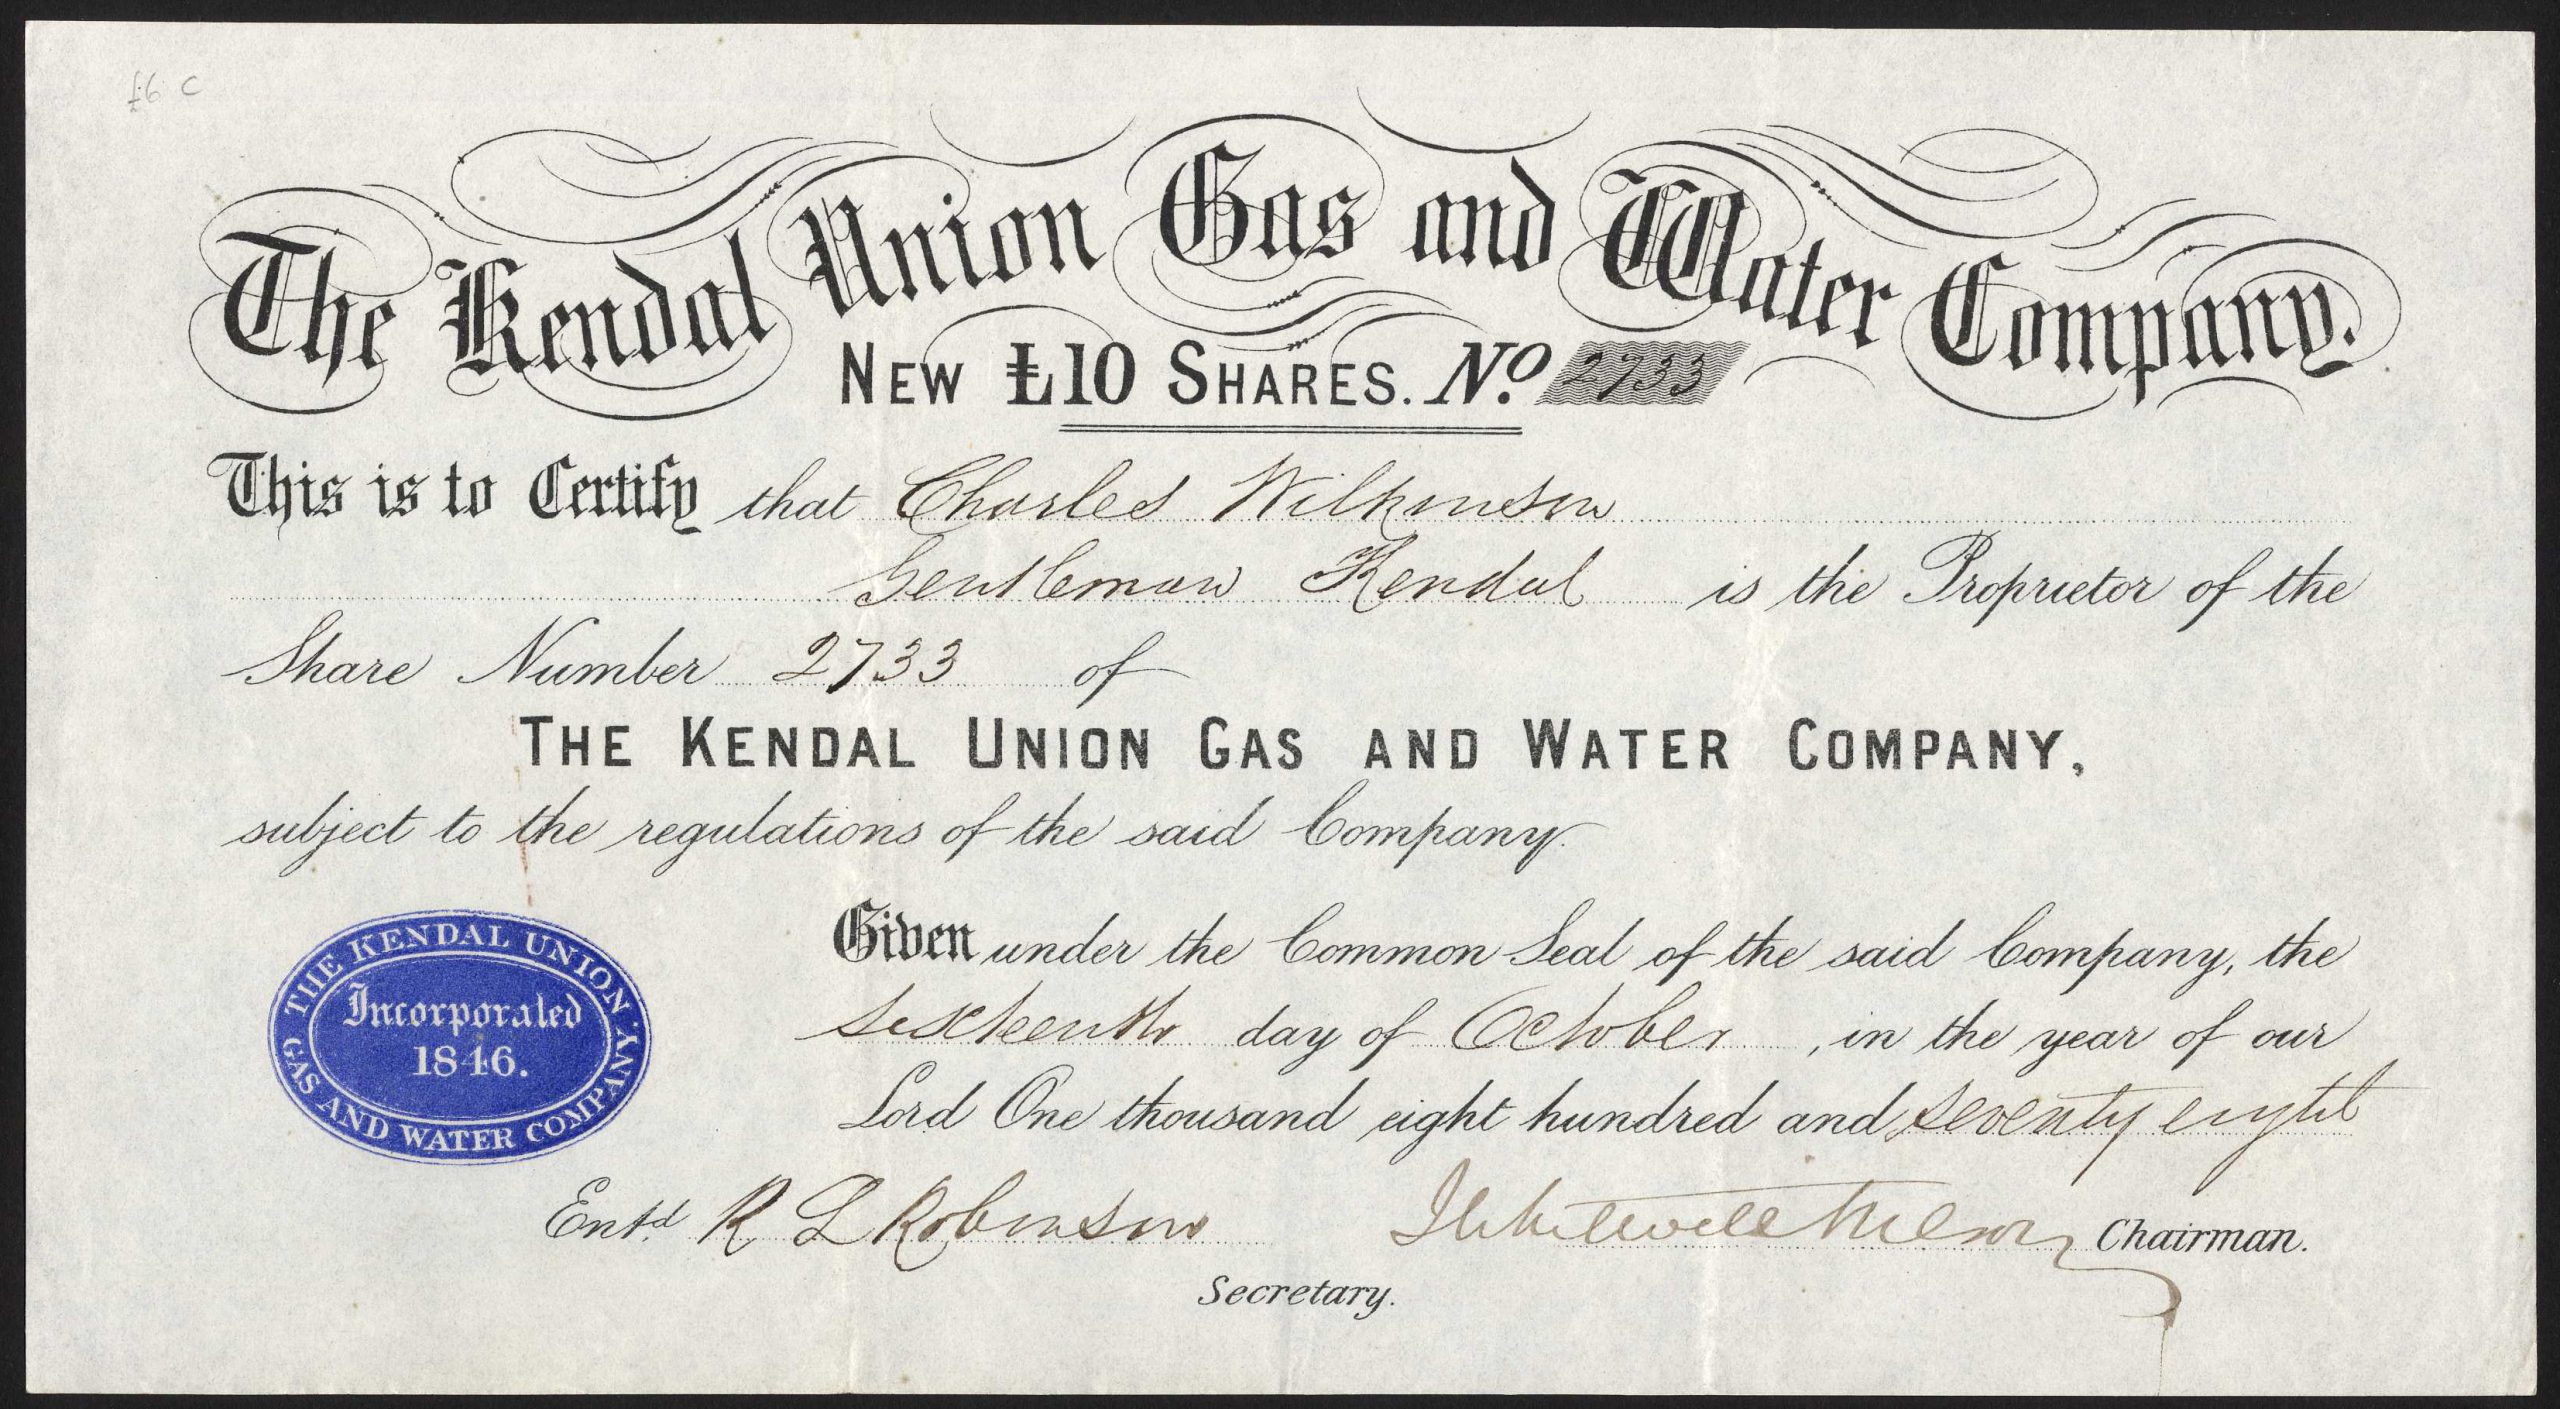 £6 C
The Kendal Union Gas and Water Company.
NEW £10 SHARES. No. 2733
This is to Certify that Charles Wilkinson
Gentleman Kendal is the Proprietor of the
Share Number 2733 of
THE KENDAL UNION GAS AND WATER COMPANY,
subject to the regulations of the said Company.
Given under the Common Seal of the said Company, the
sixteenth day of October, in the year of our
Lord One thousand eight hundred and seventy eight
THE KENDAL UNION GAS AND WATER COMPANY.
Incorporated
1846.
Entd. R L Robinson
Secretary.
Whitwell Wilson Chairman.